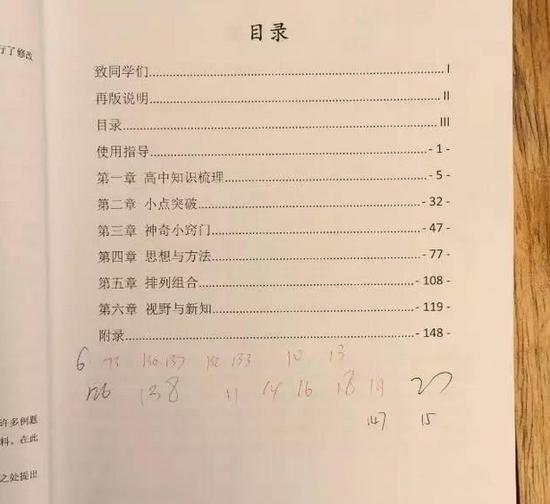 行了修改
目录
致同学们 I
再版说明 II
目录 III
使用指导 - 1 -
第一章 高中知识梳理 - 5 -
第二章 小点突破 - 32 -
第三章 神奇小窍门 - 47 -
第四章 思想与方法 - 77 -
第五章 排列组合 - 108 -
第六章 视野与新知 - 119 -
附录 - 148 -
6 133 10 13
126 138 11 14 16 18 19 27
147 15
许多例题
料。在此
之处提出